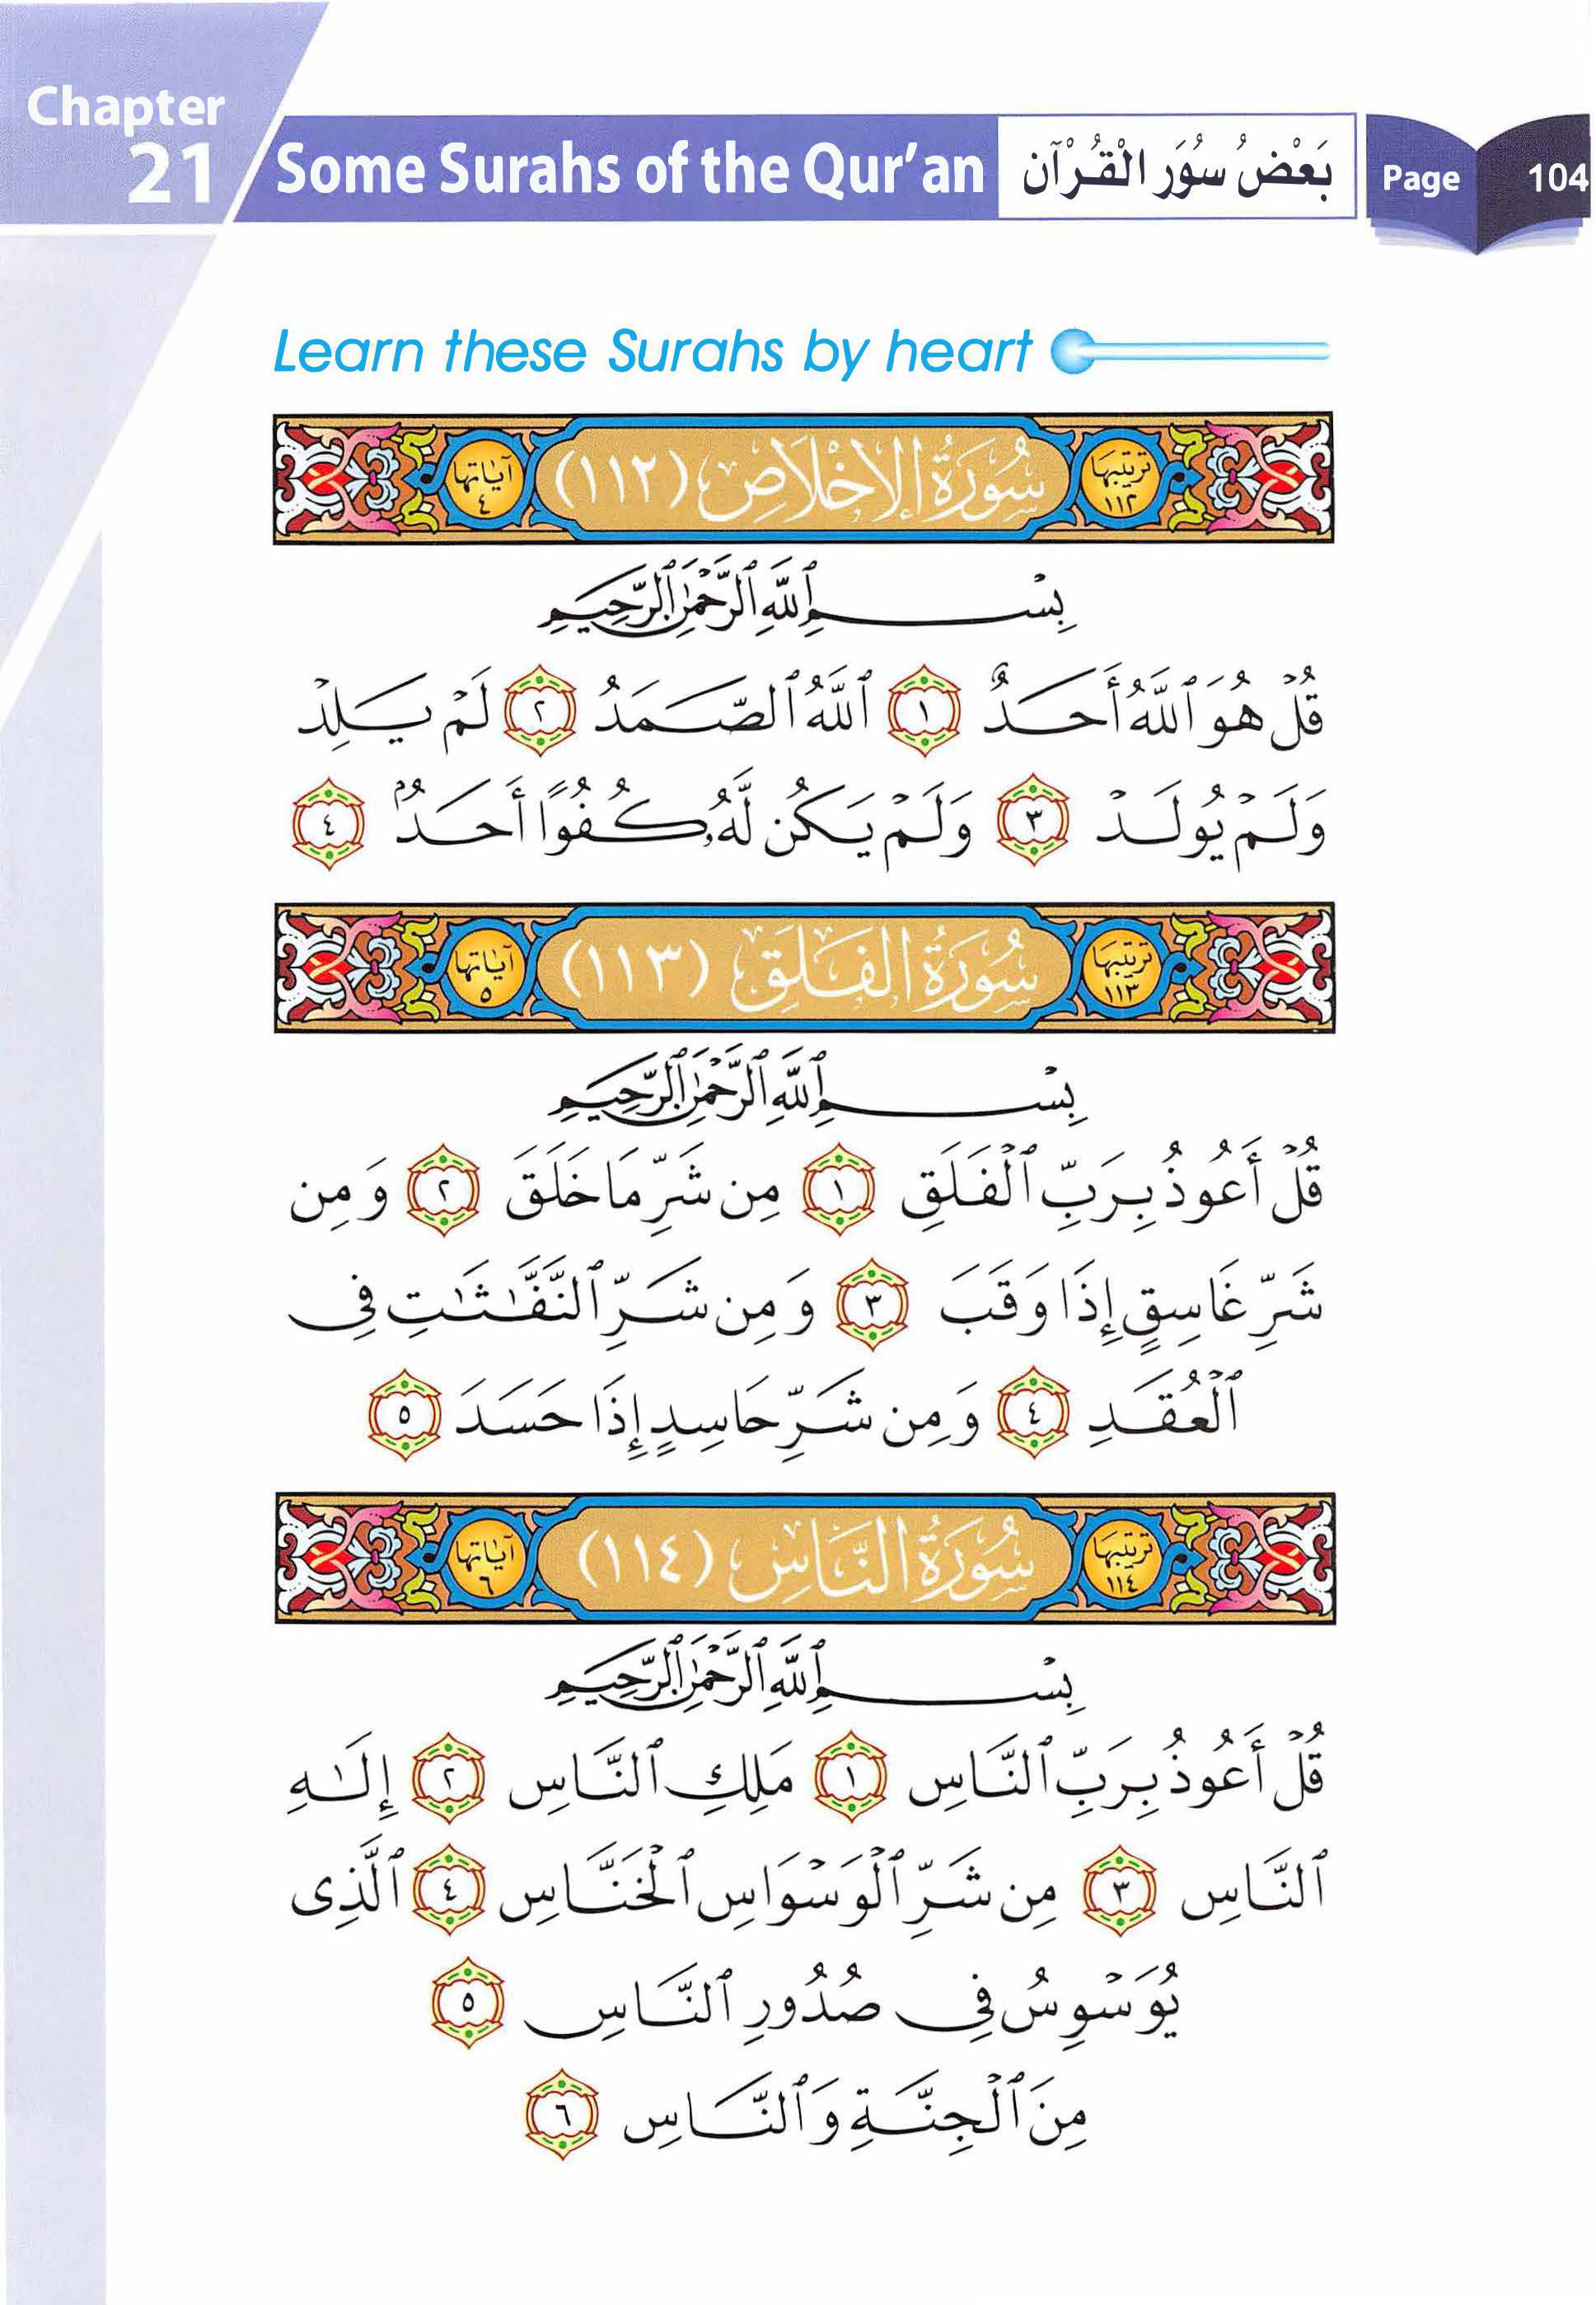 Chapter
21
Some Surahs of the Qur'an
بَعْضُ سُوَر الْقُرْآن
Page 104
Learn these Surahs by heart
ترتيبها ١١٢
سُورَةُ الإِخْلَاصِ (١١٢)
آياتها ٤
بِسْمِ ٱللَّهِ ٱلرَّحْمَٰنِ ٱلرَّحِيمِ
قُلْ هُوَ ٱللَّهُ أَحَدٌ ١ ٱللَّهُ ٱلصَّمَدُ ٢ لَمْ يَلِدْ
وَلَمْ يُولَدْ ٣ وَلَمْ يَكُن لَّهُۥ كُفُوًا أَحَدٌۢ ٤
ترتيبها ١١٣
سُورَةُ الفَلَقِ (١١٣)
آياتها ٥
بِسْمِ ٱللَّهِ ٱلرَّحْمَٰنِ ٱلرَّحِيمِ
قُلْ أَعُوذُ بِرَبِّ ٱلْفَلَقِ ١ مِن شَرِّ مَا خَلَقَ ٢ وَمِن
شَرِّ غَاسِقٍ إِذَا وَقَبَ ٣ وَمِن شَرِّ ٱلنَّفَّٰثَٰتِ فِى
ٱلْعُقَدِ ٤ وَمِن شَرِّ حَاسِدٍ إِذَا حَسَدَ ٥
ترتيبها ١١٤
سُورَةُ النَّاسِ (١١٤)
آياتها ٦
بِسْمِ ٱللَّهِ ٱلرَّحْمَٰنِ ٱلرَّحِيمِ
قُلْ أَعُوذُ بِرَبِّ ٱلنَّاسِ ١ مَلِكِ ٱلنَّاسِ ٢ إِلَٰهِ
ٱلنَّاسِ ٣ مِن شَرِّ ٱلْوَسْوَاسِ ٱلْخَنَّاسِ ٤ ٱلَّذِى
يُوَسْوِسُ فِى صُدُورِ ٱلنَّاسِ ٥
مِنَ ٱلْجِنَّةِ وَٱلنَّاسِ ٦